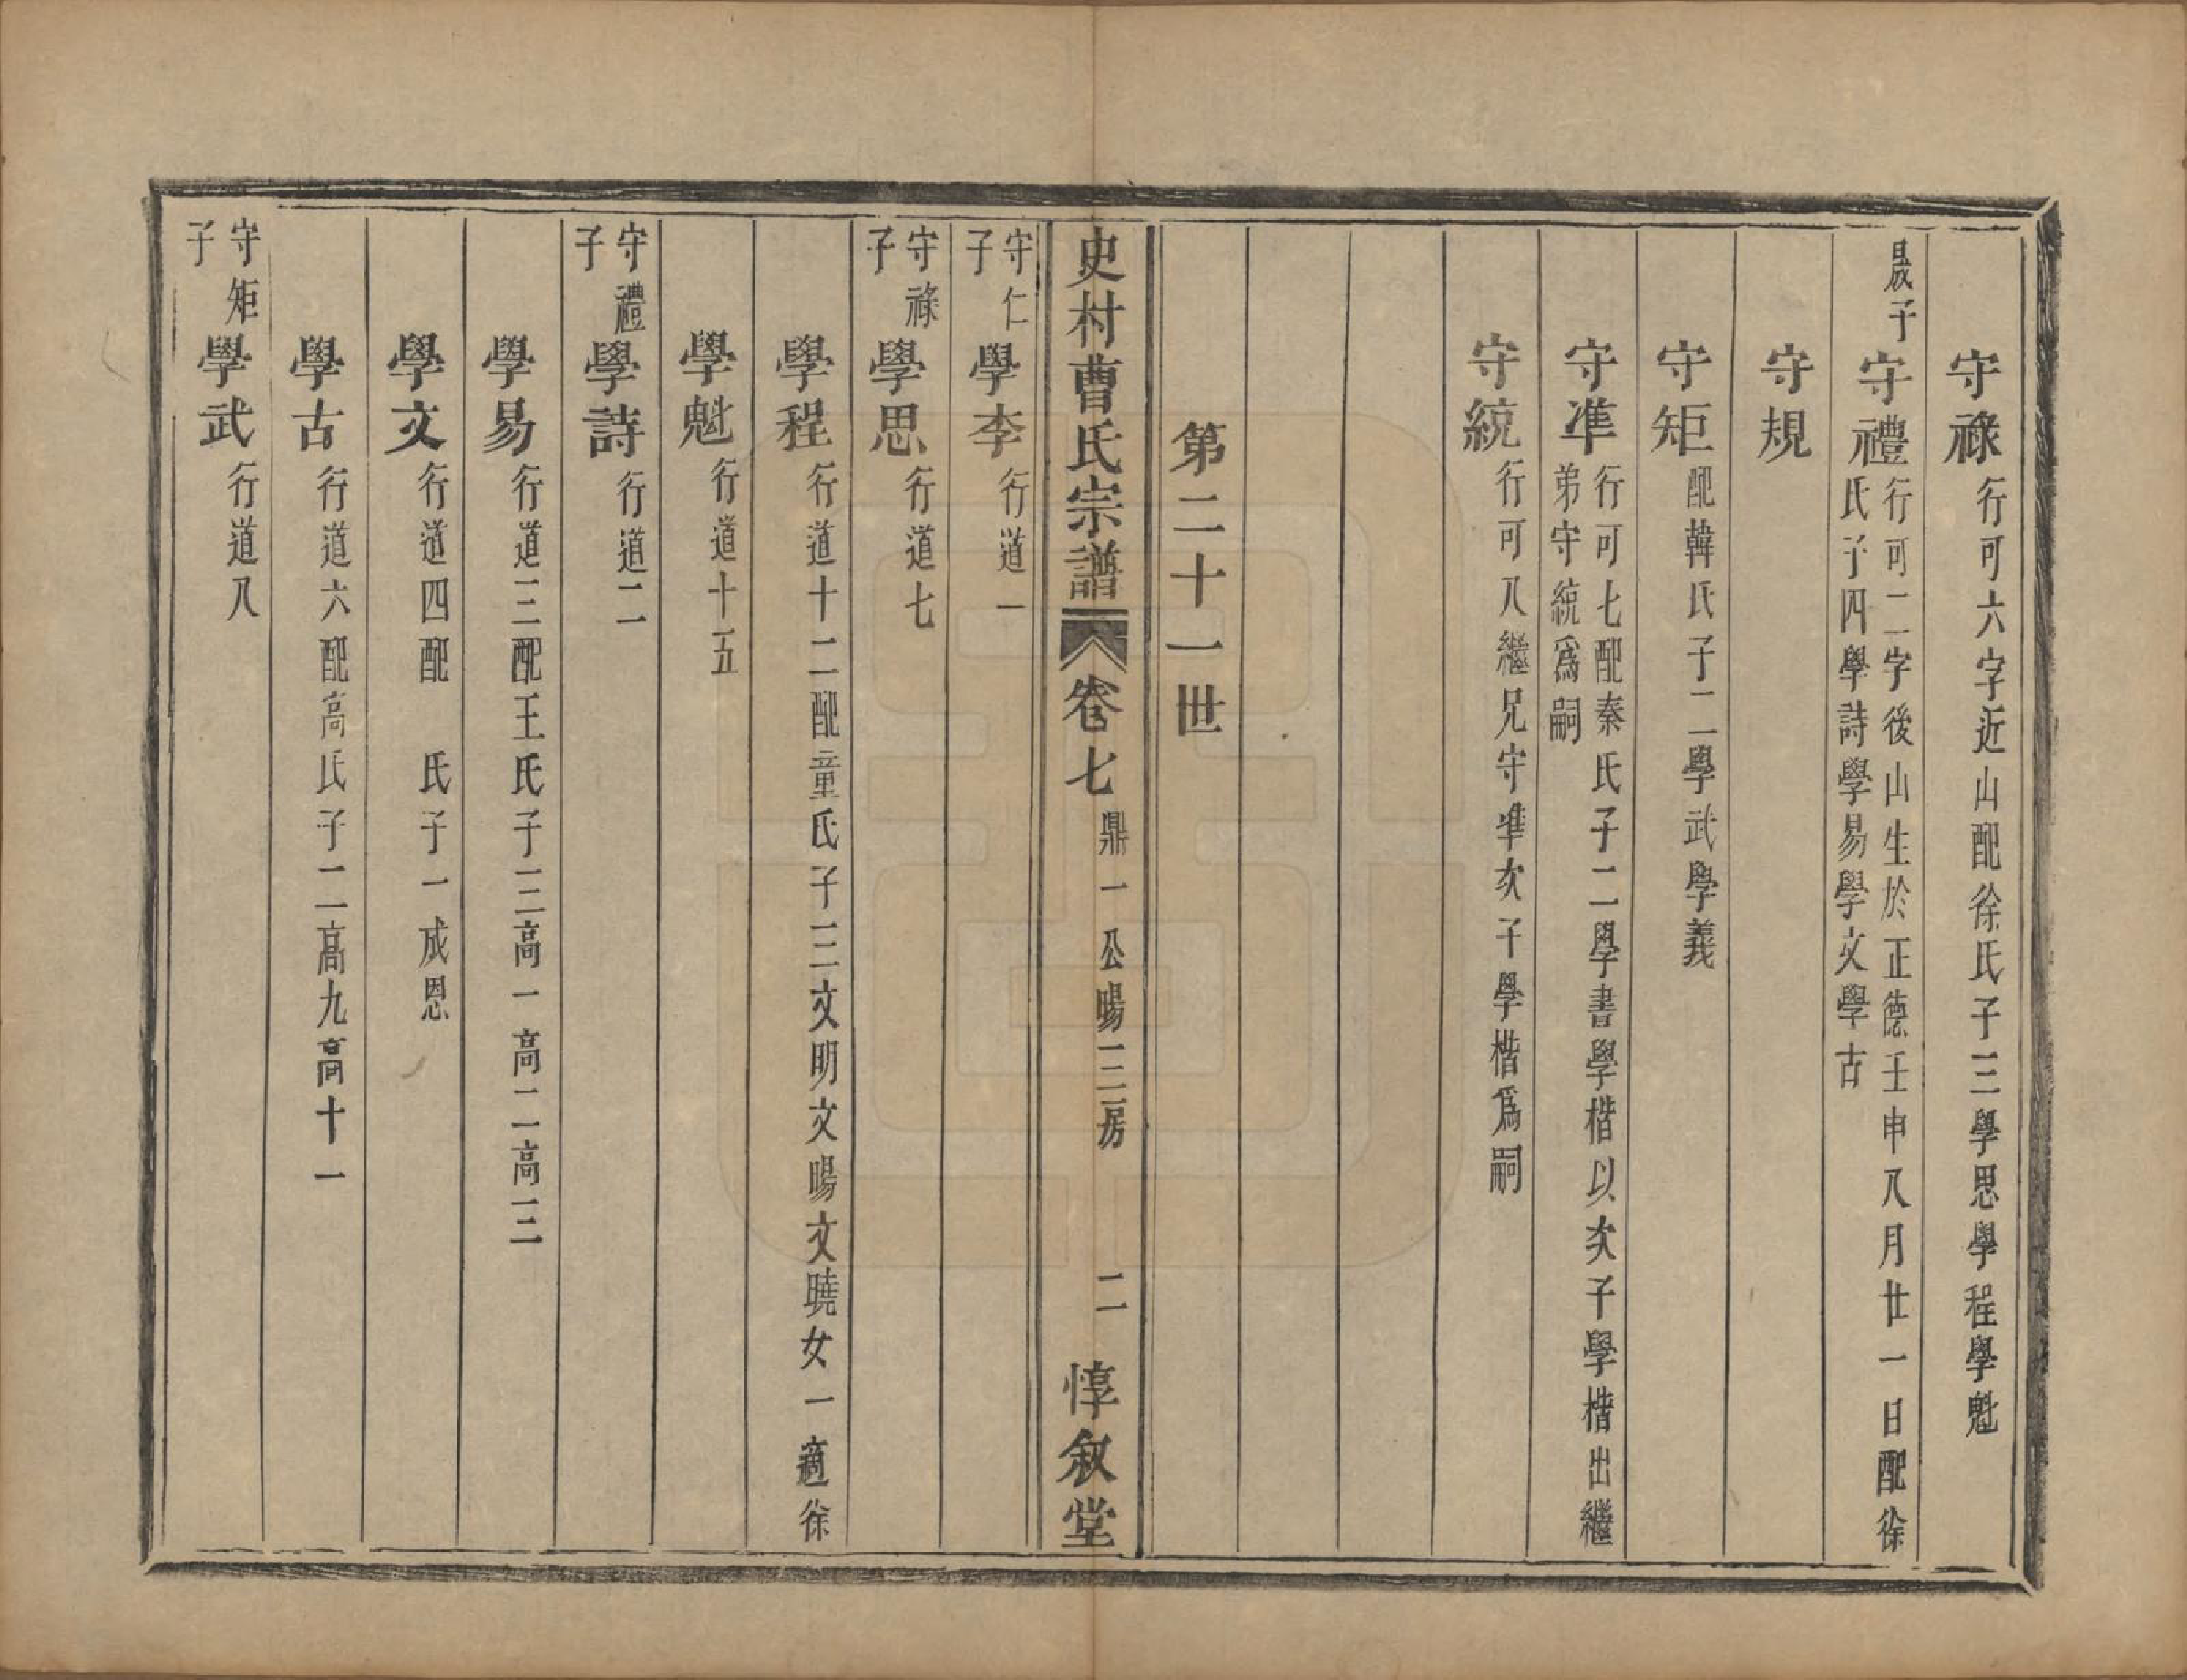 守祿行可六字近山配徐氏子三學思學程學魁
晟子守禮行可二字後山生於正德壬申八月廿一日配徐
氏子四學詩學易學文學古
守規
守矩配韓氏子二學武學義
守準行可七配秦氏子二學書學楷以次子學楷出繼
弟守統爲嗣
守統行可八繼兄守準次子學楷爲嗣
第二十一世
史村曹氏宗譜 卷七 鼎一公暘三房 二 惇敘堂
守仁子學李行道一
守祿子學思行道七
學程行道十二配童氏子三文明文暘文曉女一適徐
學魁行道十五
守禮子學詩行道二
學易行道三配王氏子三高一高二高三
學文行道四配 氏子一成恩
學古行道六配高氏子二高九高十一
守矩子學武行道八